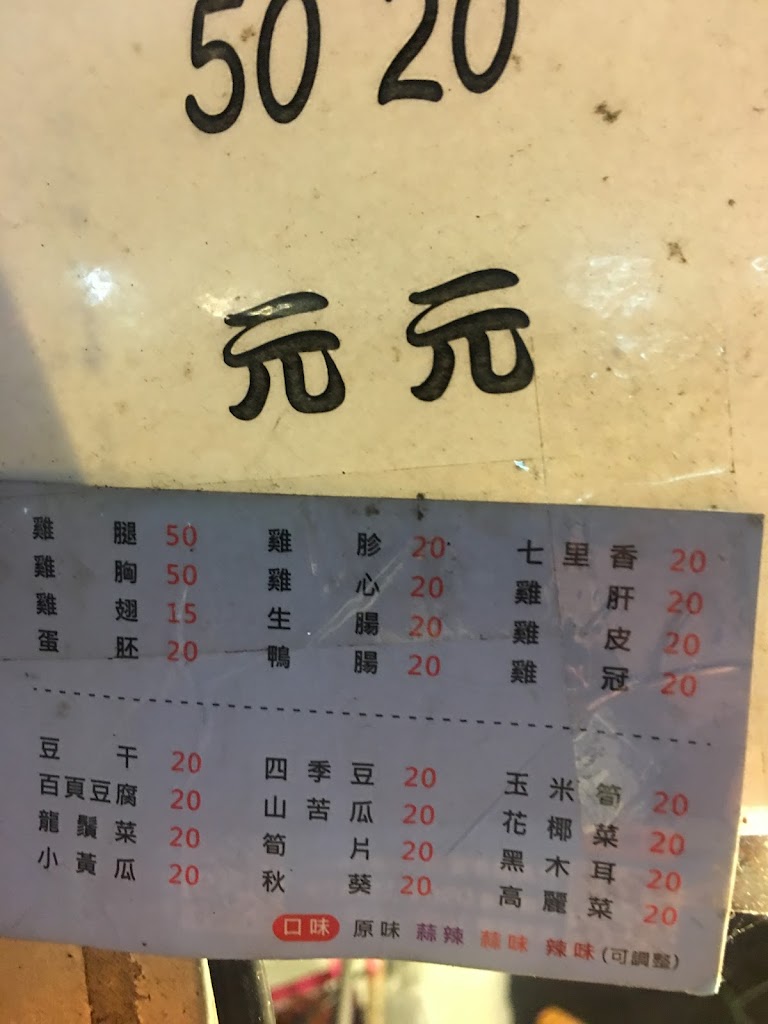 50 20
元 元
雞腿 50 雞胗 20 七里香 20
雞胸 50 雞心 20 雞肝 20
雞翅 15 生腸 20 雞皮 20
蛋胚 20 鴨腸 20 雞冠 20
豆干 20 四季豆 20 玉米筍 20
百頁豆腐 20 山苦瓜 20 花椰菜 20
龍鬚菜 20 筍片 20 黑木耳 20
小黃瓜 20 秋葵 20 高麗菜 20
口味 原味 蒜辣 蒜味 辣味 (可調整)